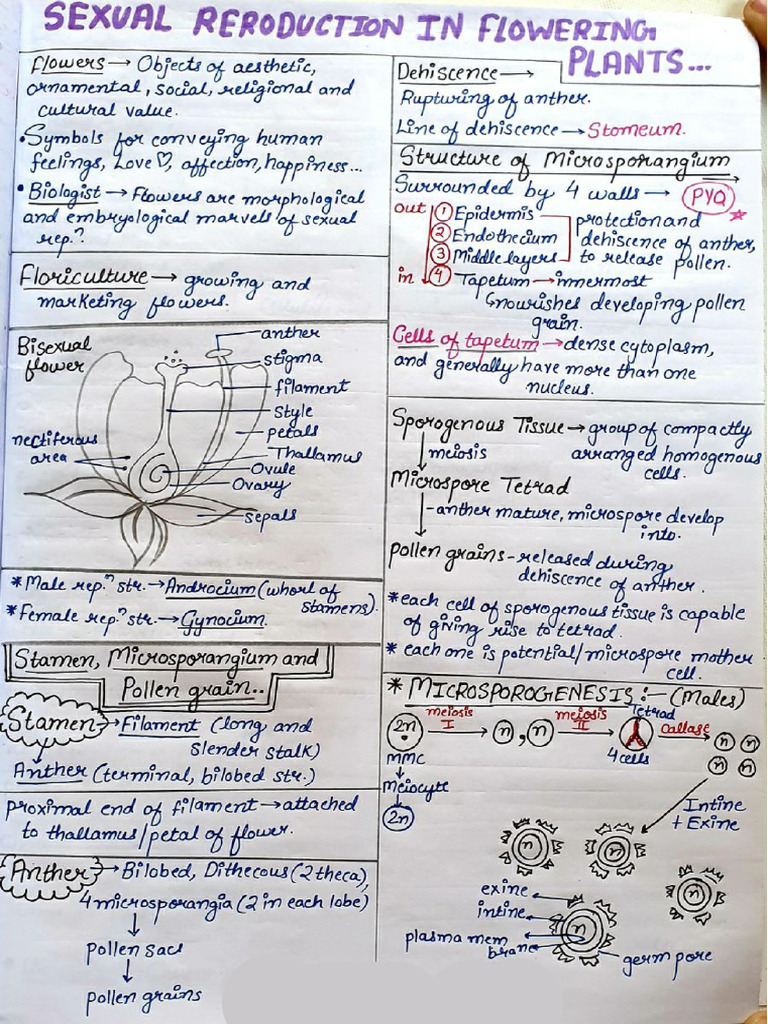 SEXUAL RERODUCTION IN FLOWERING
PLANTS...
Flowers → Objects of aesthetic,
ornamental, social, religional and
cultural value.
• Symbols for conveying human
feelings, Love ♡, affection, happiness...
• Biologist → Flowers are morphological
and embryological marvels of sexual
rep.ⁿ
Floriculture → growing and
marketing flowers.
Bisexual
flower
anther
stigma
filament
style
petals
nectiferous
area
Thallamus
Ovule
Ovary
sepals
* Male rep.ⁿ str. → Androcium (whorl of
stamens).
* Female rep.ⁿ str. → Gynocium.
Stamen, Microsporangium and
Pollen grain..
Stamen → Filament (long and
slender stalk)
Anther (terminal, bilobed str.)
proximal end of filament → attached
to thallamus/petal of flower.
Anther → Bilobed, Dithecous (2 theca),
4 microsporangia (2 in each lobe)
↓
pollen sacs
↓
pollen grains
Dehiscence →
Rupturing of anther.
Line of dehiscence → Stomeum.
Structure of Microsporangium
Surrounded by 4 walls → PYQ
out ① Epidermis
② Endothecium
③ Middle layers
protection and
dehiscence of anther,
to release pollen.
in ④ Tapetum → innermost
↳ nourishes developing pollen
grain.
Cells of tapetum → dense cytoplasm,
and generally have more than one
nucleus.
Sporogenous Tissue → group of compactly
arranged homogenous
cells.
↓ meiosis
Microspore Tetrad
- anther mature, microspore develop
into.
pollen grains - released during
dehiscence of anther.
* each cell of sporogenous tissue is capable
of giving rise to tetrad.
* each one is potential/microspore mother
cell.
* MICROSPOROGENESIS :- (Males)
2n meiosis I → n, n meiosis II → Tetrad callase → n n
4 cells n n
MMC
↓
Meiocyte
↓
2n
Intine
+ Exine
n n n
exine
intine
n
plasma mem
brane
germ pore